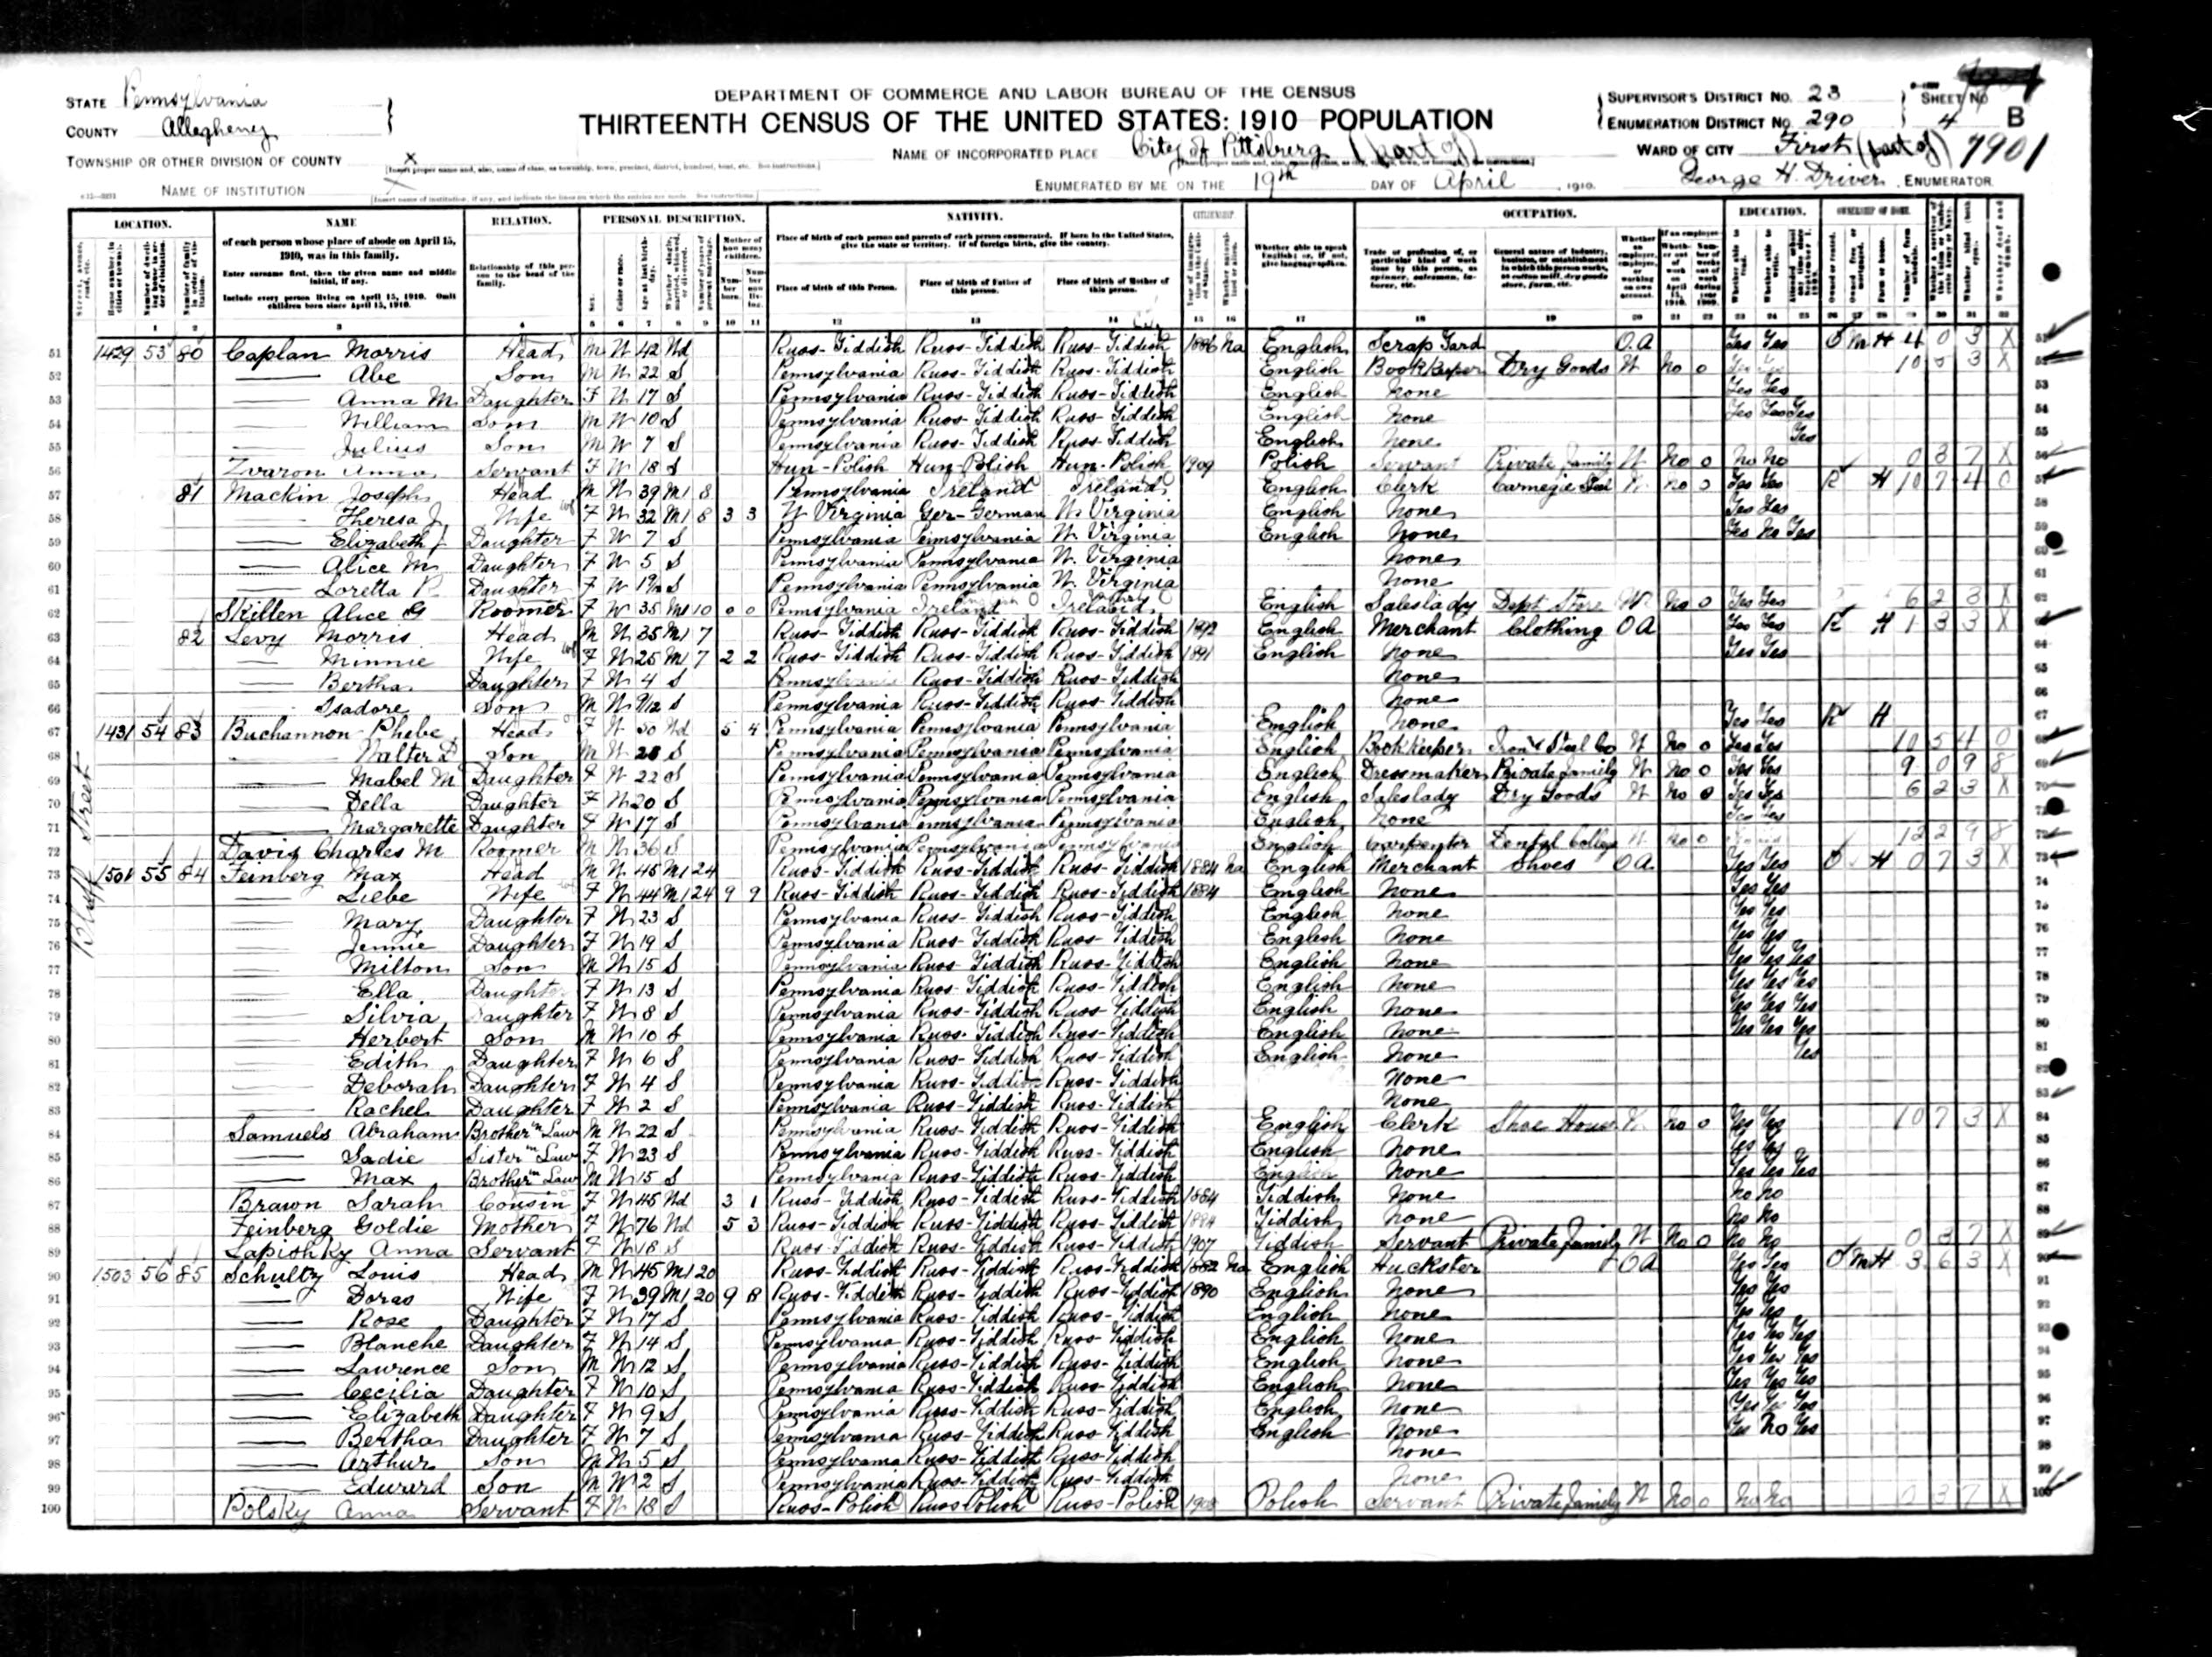 DEPARTMENT OF COMMERCE AND LABOR BUREAU OF THE CENSUS
THIRTEENTH CENSUS OF THE UNITED STATES: 1910 POPULATION
STATE Pennsylvania
COUNTY Allegheny
TOWNSHIP OR OTHER DIVISION OF COUNTY X
NAME OF INSTITUTION X
NAME OF INCORPORATED PLACE City of Pittsburg (part of)
ENUMERATED BY ME ON THE 19th DAY OF April, 1910.
SUPERVISOR'S DISTRICT NO. 23
ENUMERATION DISTRICT NO. 290
SHEET NO 4 B
WARD OF CITY First (part of) 7901
George H. Driver, ENUMERATOR
LOCATION. NAME RELATION. PERSONAL DESCRIPTION. NATIVITY. CITIZENSHIP. OCCUPATION. EDUCATION. OWNERSHIP OF HOME.
of each person whose place of abode on April 15, 1910, was in this family.
Enter surname first, then the given name and middle initial, if any.
Include every person living on April 15, 1910. Omit children born since April 15, 1910.
Relationship of this person to the head of the family.
Place of birth of each person and parents of each person enumerated. If born in the United States, give the state or territory. If of foreign birth, give the country.
Place of birth of this Person. Place of birth of Father of this person. Place of birth of Mother of this person.
Whether able to speak English; or, if not, give language spoken.
Bluff Street
51 1429 53 80 Caplan Morris Head M W 42 Wd Russ-Yiddish Russ-Yiddish Russ-Yiddish 1886 Na English Scrap Yard OA Yes Yes O M H 4 0 3 X
52 Abe Son M W 22 S Pennsylvania Russ-Yiddish Russ-Yiddish English Bookkeeper Dry Goods W No 0
53 Anna M. Daughter F W 17 S Pennsylvania Russ-Yiddish Russ-Yiddish English None Yes Yes
54 William Son M W 10 S Pennsylvania Russ-Yiddish Russ-Yiddish English None Yes Yes Yes
55 Julius Son M W 7 S Pennsylvania Russ-Yiddish Russ-Yiddish English None Yes
56 Zvaron Anna Servant F W 18 S Hun-Polish Hun-Polish Hun-Polish 1909 Polish Servant Private Family W No 0 No No 0 3 7 X
57 81 Mackin Joseph Head M W 39 M1 8 Pennsylvania Ireland Ireland English Clerk Carnegie Steel W No 0 Yes Yes R H 10 7 4 0
58 Theresa J. Wife F W 32 M1 8 3 3 W Virginia Ger-German W. Virginia English None Yes Yes
59 Elizabeth J. Daughter F W 7 S Pennsylvania Pennsylvania W. Virginia English None Yes No Yes
60 Alice M. Daughter F W 5 S Pennsylvania Pennsylvania W. Virginia None
61 Loretta R Daughter F W S Pennsylvania Pennsylvania W. Virginia None
62 Skillen Alice G Roomer F W 35 M1 10 0 0 Pennsylvania Ireland Ireland English Saleslady Dept Store W No 0 Yes Yes 6 2 3 X
63 82 Levy Morris Head M W 35 M1 7 Russ-Yiddish Russ-Yiddish Russ-Yiddish English Merchant Clothing OA Yes Yes R H 1 3 3 X
64 Minnie Wife F W 25 M1 7 2 2 Russ-Yiddish Russ-Yiddish Russ-Yiddish 1891 English None Yes Yes
65 Bertha Daughter F W 4 S Pennsylvania Russ-Yiddish Russ-Yiddish None
66 Isadore Son M W 9/12 S Pennsylvania Russ-Yiddish Russ-Yiddish None
67 1431 54 83 Buchannon Phebe Head F W 50 Wd 5 4 Pennsylvania Pennsylvania Pennsylvania English None Yes Yes R H
68 Walter D Son M W S Pennsylvania Pennsylvania Pennsylvania English Bookkeeper Iron & Steel Co W No 0 Yes Yes 10 5 4 0
69 Mabel M Daughter F W 22 S Pennsylvania Pennsylvania Pennsylvania English Dressmaker Private family W No 0 Yes Yes 9 0 9 8
70 Della Daughter F W 20 S Pennsylvania Pennsylvania Pennsylvania English Saleslady Dry Goods W No 0 Yes Yes 6 2 3 X
71 Margarette Daughter F W 17 S Pennsylvania Pennsylvania Pennsylvania English None Yes Yes
72 Davis Charles M Roomer M W 36 S Pennsylvania Pennsylvania Pennsylvania English Carpenter Dental College W No 0 12 2 9 8
73 1501 55 84 Feinberg Max Head M W 45 M1 24 Russ-Yiddish Russ-Yiddish Russ-Yiddish 1884 Na English Merchant Shoes OA Yes Yes O H 0 7 3 X
74 Liebe Wife F W 44 M1 24 9 9 Russ-Yiddish Russ-Yiddish Russ-Yiddish 1884 English None Yes Yes
75 Mary Daughter F W 23 S Pennsylvania Russ-Yiddish Russ-Yiddish English None Yes Yes
76 Jennie Daughter F W 19 S Pennsylvania Russ-Yiddish Russ-Yiddish English None Yes Yes
77 Milton Son M W 15 S Pennsylvania Russ-Yiddish Russ-Yiddish English None Yes Yes Yes
78 Ella Daughter F W 13 S Pennsylvania Russ-Yiddish Russ-Yiddish English None Yes Yes Yes
79 Silvia Daughter F W 8 S Pennsylvania Russ-Yiddish Russ-Yiddish English None Yes Yes Yes
80 Herbert Son M W 10 S Pennsylvania Russ-Yiddish Russ-Yiddish English None Yes Yes Yes
81 Edith Daughter F W 6 S Pennsylvania Russ-Yiddish Russ-Yiddish English None Yes
82 Deborah Daughter F W 4 S Pennsylvania Russ-Yiddish Russ-Yiddish None
83 Rachel Daughter F W 2 S Pennsylvania Russ-Yiddish Russ-Yiddish None
84 Samuels Abraham Brother in Law M W 22 S Pennsylvania Russ-Yiddish Russ-Yiddish English Clerk Shoe House W No 0 Yes Yes 10 7 3 X
85 Sadie Sister in Law F W 23 S Pennsylvania Russ-Yiddish Russ-Yiddish English None Yes Yes
86 Max Brother in Law M W 15 S Pennsylvania Russ-Yiddish Russ-Yiddish English None Yes Yes Yes
87 Brawn Sarah Cousin F W 45 Wd 3 1 Russ-Yiddish Russ-Yiddish Russ-Yiddish 1884 Yiddish None No No
88 Feinberg Goldie Mother F W 76 Wd 5 3 Russ-Yiddish Russ-Yiddish Russ-Yiddish 1884 Yiddish None No No
89 Lapishky Anna Servant F W 18 S Russ-Yiddish Russ-Yiddish Russ-Yiddish 1907 Yiddish Servant Private family W No 0 No No 0 3 7 X
90 1503 56 85 Schultz Louis Head M W 45 M1 20 Russ-Yiddish Russ-Yiddish Russ-Yiddish 1882 Na English Huckster OA Yes Yes O M H 3 6 3 X
91 Doras Wife F W 39 M1 20 9 8 Russ-Yiddish Russ-Yiddish Russ-Yiddish 1890 English None Yes Yes
92 Rose Daughter F W 17 S Pennsylvania Russ-Yiddish Russ-Yiddish English None Yes Yes
93 Blanche Daughter F W 14 S Pennsylvania Russ-Yiddish Russ-Yiddish English None Yes Yes Yes
94 Lawrence Son M W 12 S Pennsylvania Russ-Yiddish Russ-Yiddish English None Yes Yes Yes
95 Cecilia Daughter F W 10 S Pennsylvania Russ-Yiddish Russ-Yiddish English None Yes Yes Yes
96 Elizabeth Daughter F W 9 S Pennsylvania Russ-Yiddish Russ-Yiddish English None Yes Yes Yes
97 Bertha Daughter F W 7 S Pennsylvania Russ-Yiddish Russ-Yiddish English None Yes No Yes
98 Arthur Son M W 5 S Pennsylvania Russ-Yiddish Russ-Yiddish None
99 Edward Son M W 2 S Pennsylvania Russ-Yiddish Russ-Yiddish None
100 Polsky Anna Servant F W 18 S Russ-Polish Russ Polish Russ-Polish Polish Servant Private family W No 0 No No 0 3 7 X